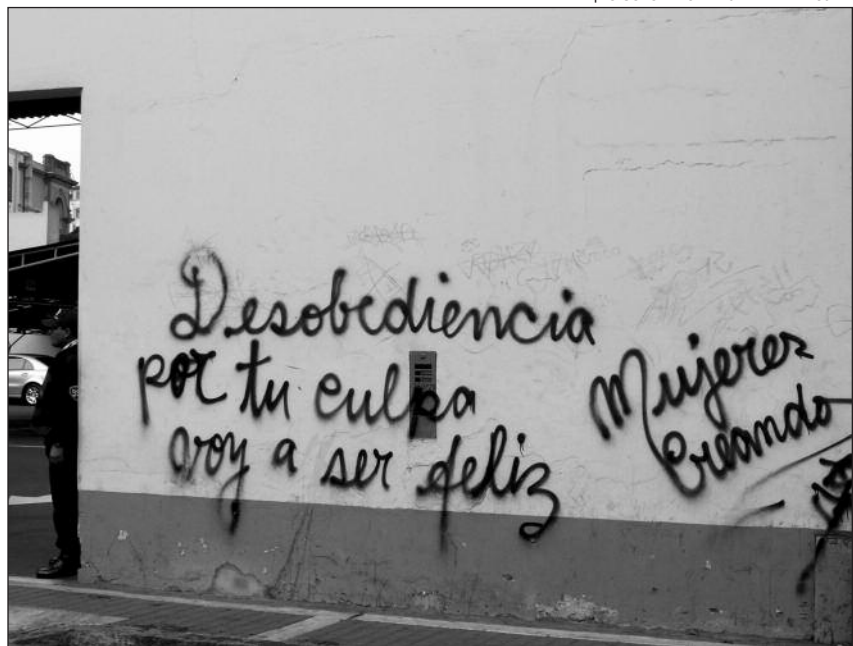 Desobediencia
por tu culpa
voy a ser feliz
Mujeres
Creando